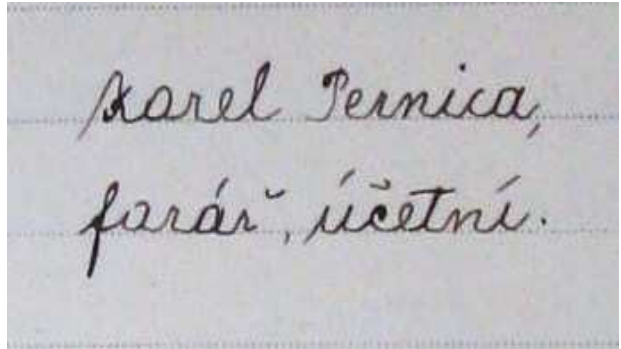 Karel Pernica,
farář, účetní.